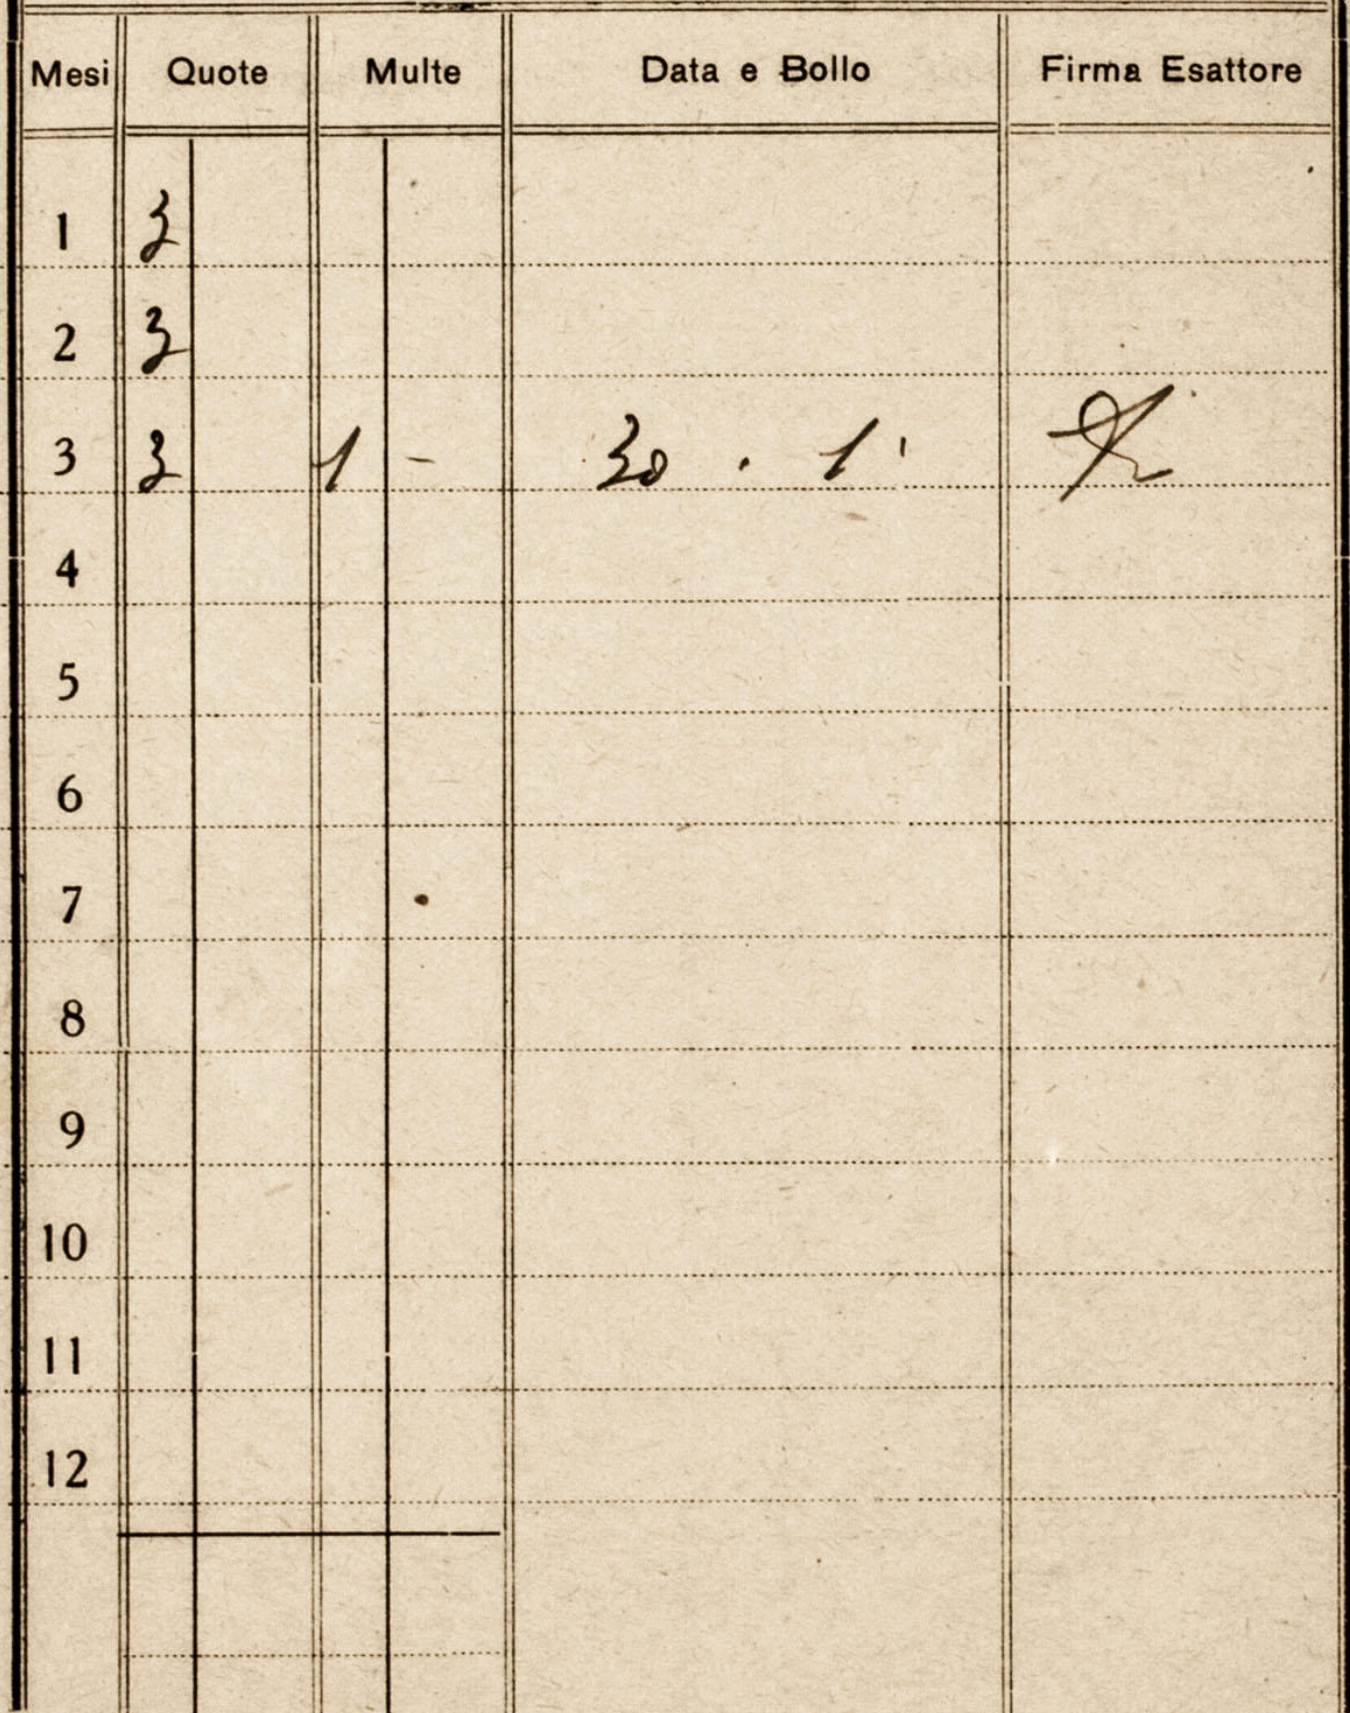 Mesi Quote Multe Data e Bollo Firma Esattore
1 3
2 3
3 3 1 - 30 . 1
4
5
6
7
8
9
10
11
12